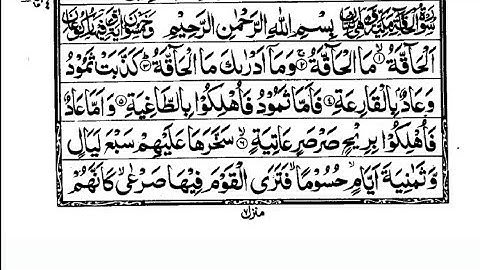 بِسْمِ اللّٰهِ الرَّحْمٰنِ الرَّحِيْمِ
اَلْحَآقَّةُ ۙ۱ مَا الْحَآقَّةُ ۚ۲ وَمَآ اَدْرٰىكَ مَا الْحَآقَّةُ ؕ۳ كَذَّبَتْ ثَمُوْدُ
وَعَادٌۢ بِالْقَارِعَةِ ۴ فَاَمَّا ثَمُوْدُ فَاُهْلِكُوْا بِالطَّاغِيَةِ ۵ وَاَمَّا عَادٌ
فَاُهْلِكُوْا بِرِيْحٍ صَرْصَرٍ عَاتِيَةٍ ۙ۶ سَخَّرَهَا عَلَيْهِمْ سَبْعَ لَيَالٍ
وَّثَمٰنِيَةَ اَيَّامٍ ۙ حُسُوْمًا فَتَرَى الْقَوْمَ فِيْهَا صَرْعٰى ۙ كَاَنَّهُمْ
منزل